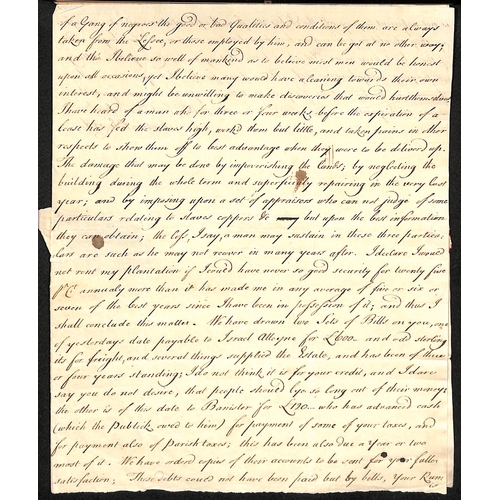 of a Gang of negroes the good or bad Qualities and conditions of them are always
taken from the Lessee, or those employed by him, and can be got at no other way;
and tho I believe so well of mankind as to believe most men would be honest
upon all occasions, yet I believe many would have a leaning towards their own
interest, and might be unwilling to make discoveries that would hurt themselves
I have heard of a man who for three or four weeks before the expiration of a
Lease has fed the slaves high, work'd them but little, and taken pains in other
respects to show them off to best advantage when they were to be deliver'd up.
The damage that may be done by impoverishing the Lands; by neglecting the
building during the whole term and superficially repairing in the very last
year; and by imposing upon a set of appraisers who can not judge of some
particulars relating to slaves coppers &c but upon the best information
they can obtain; the loss, I say, a man may sustain in these three particu,
lars are such as he may not recover in many years after. I declare I would
not rent my plantation if I could have never so good security for twenty five
P C annualy more than it has made me in any average of five or six or
seven of the best years since I have been in possession of it; and thus I
shall conclude this matter. We have drawn two Sets of Bills on you, one
of yesterdays date payable to Israel Alleyne for £600 and odd sterling
its for freight, and several things supplied the Estate, and has been of three
or four years standing: I do not think it is for your credit, and I dare
say you do not desire, that people should lye so long out of their money;
the other is of this date to Banister for £130 who has advanced cash
(which the Publick owed to him) for payment of some of your taxes, and
for payment also of Parish taxes; this has been also due a year or two
most of it. We have ordered copies of their accounts to be sent for your fuller
satisfaction; These debts could not have been paid but by bills, your Rum